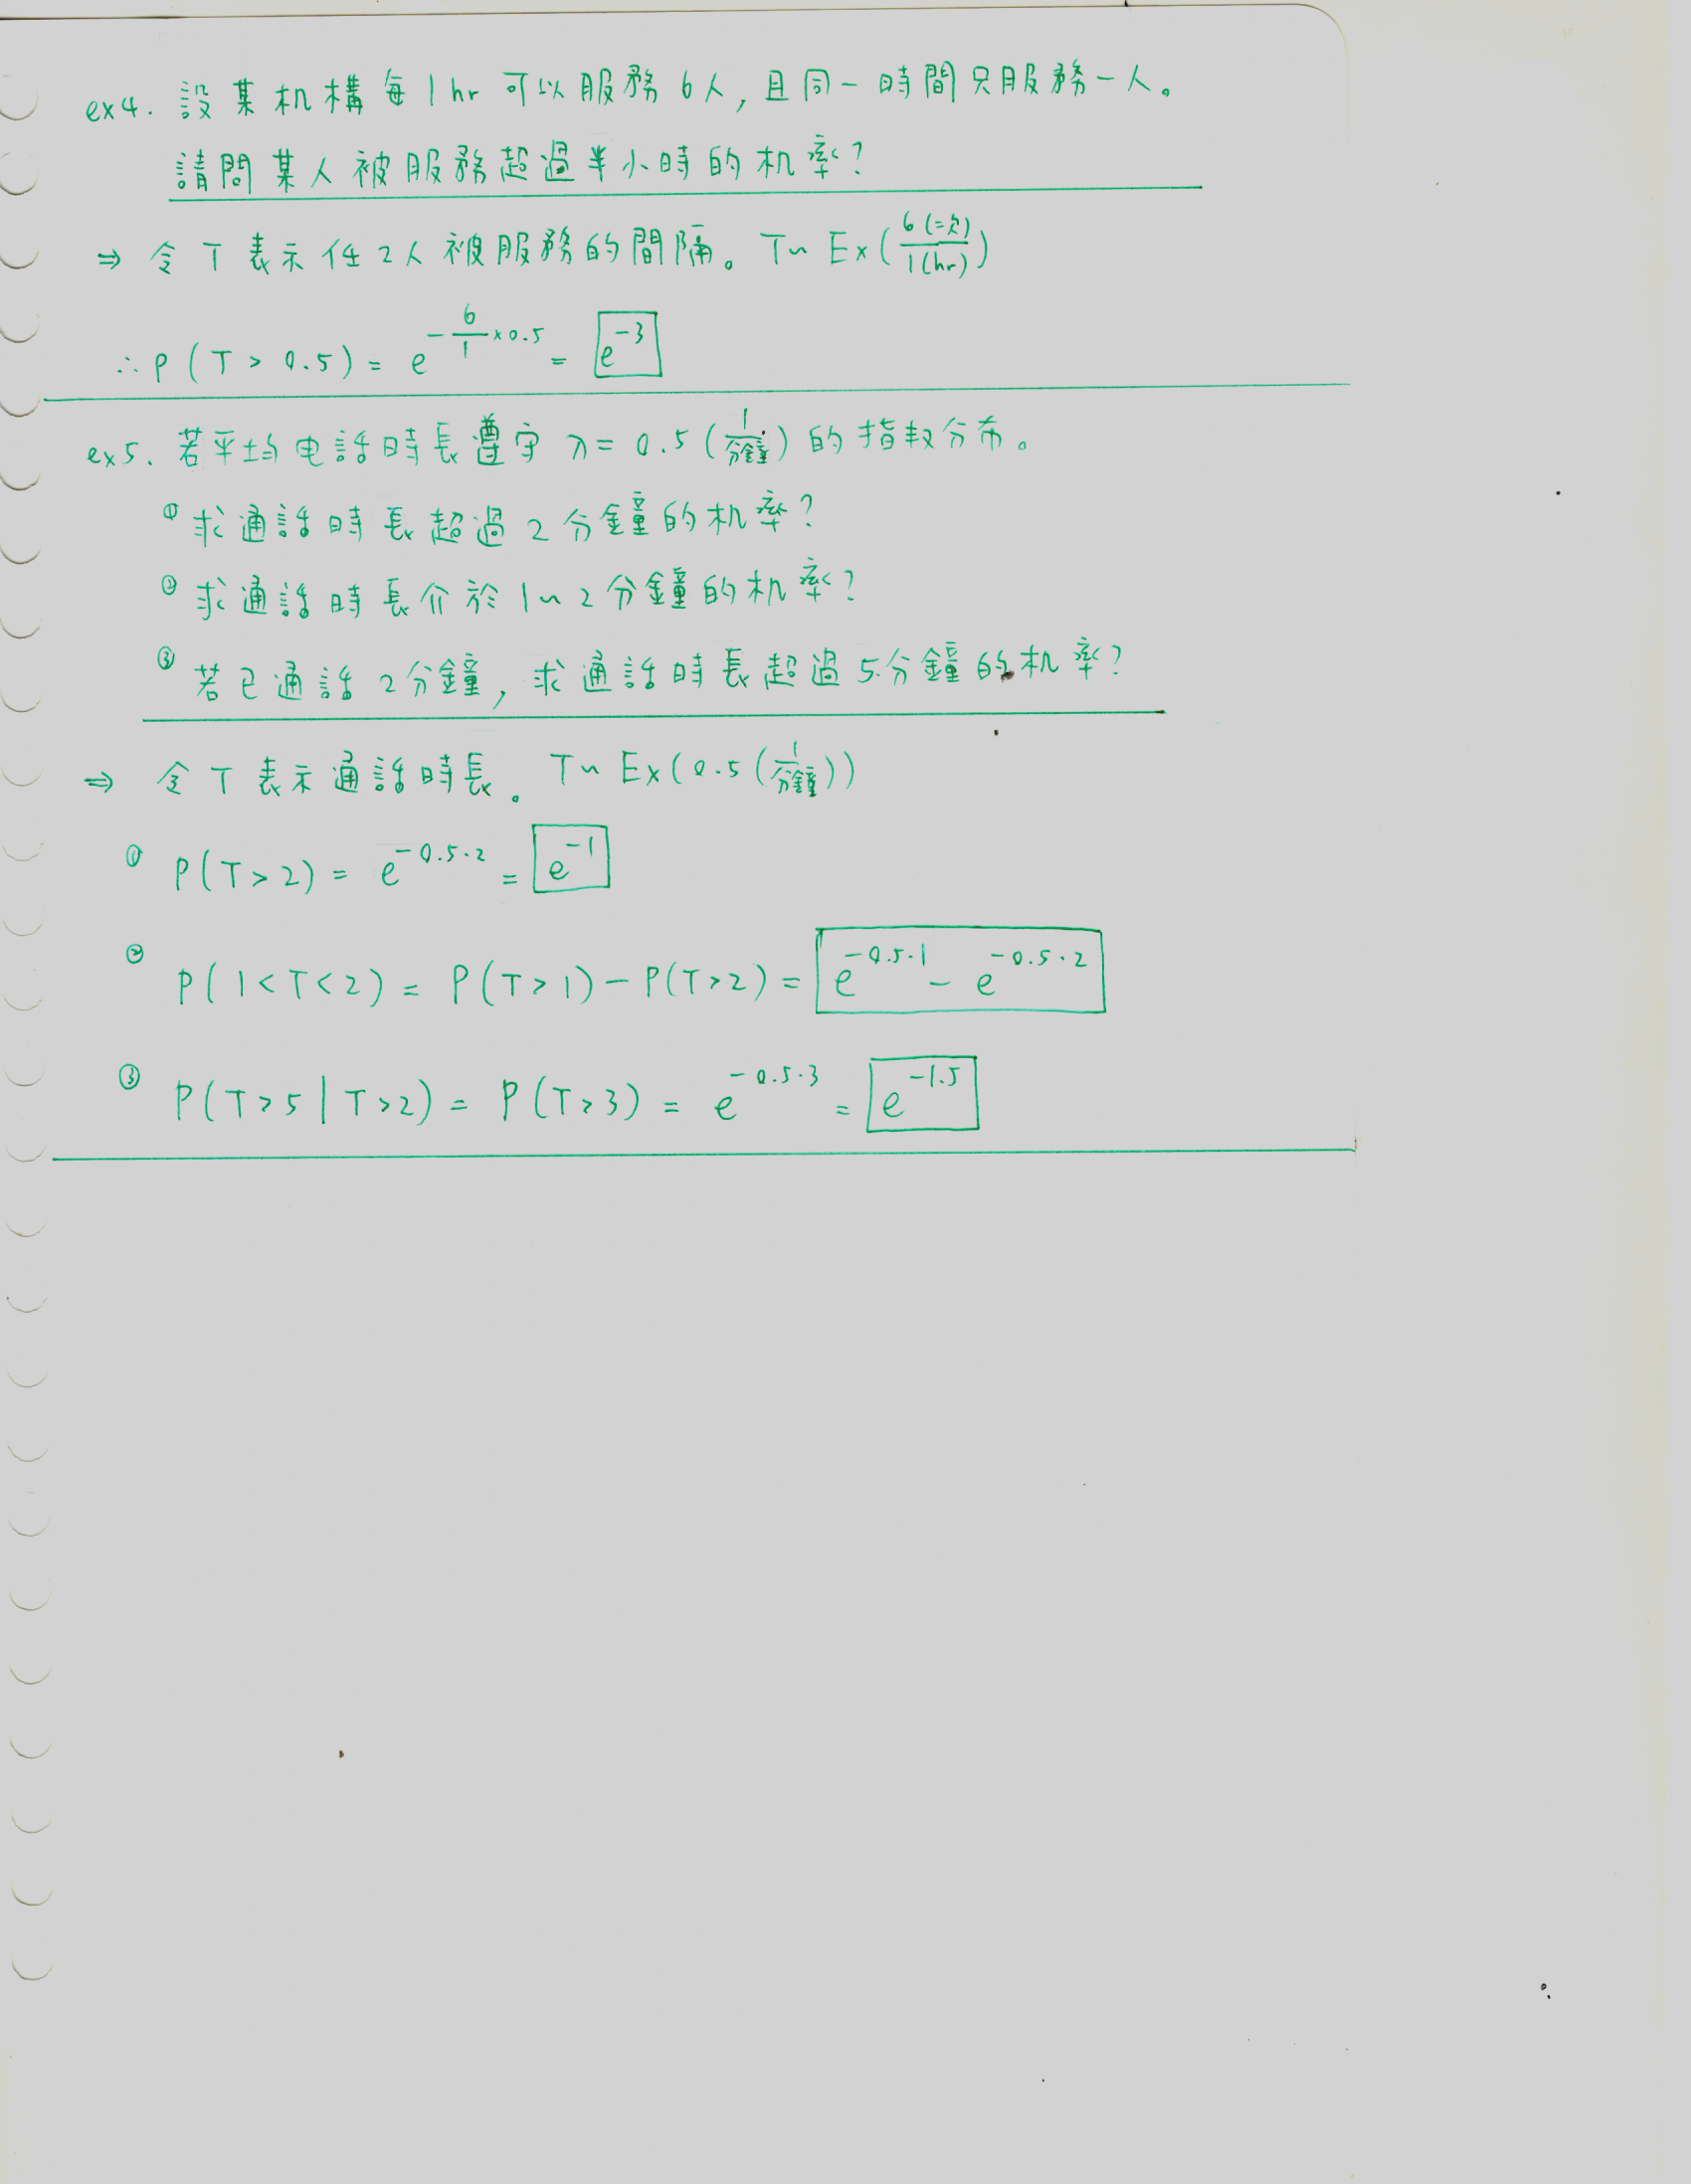 ex4. 設某机構每1hr可以服務6人, 且同一時間只服務一人。
請問某人被服務超過半小時的机率?
⇒ 令T表示任2人被服務的間隔。T~Ex(6(=次)/1(hr))
∴P(T>0.5)=e^{-6/1×0.5}=e^{-3}
ex5. 若平均电話時長遵守λ=0.5(1/分鐘)的指数分布。
① 求通話時長超過2分鐘的机率?
② 求通話時長介於1~2分鐘的机率?
③ 若已通話2分鐘, 求通話時長超過5分鐘的机率?
⇒ 令T表示通話時長。T~Ex(0.5(1/分鐘))
① P(T>2)=e^{-0.5·2}=e^{-1}
② P(1<T<2)=P(T>1)-P(T>2)=e^{-0.5·1}-e^{-0.5·2}
③ P(T>5|T>2)=P(T>3)=e^{-0.5·3}=e^{-1.5}